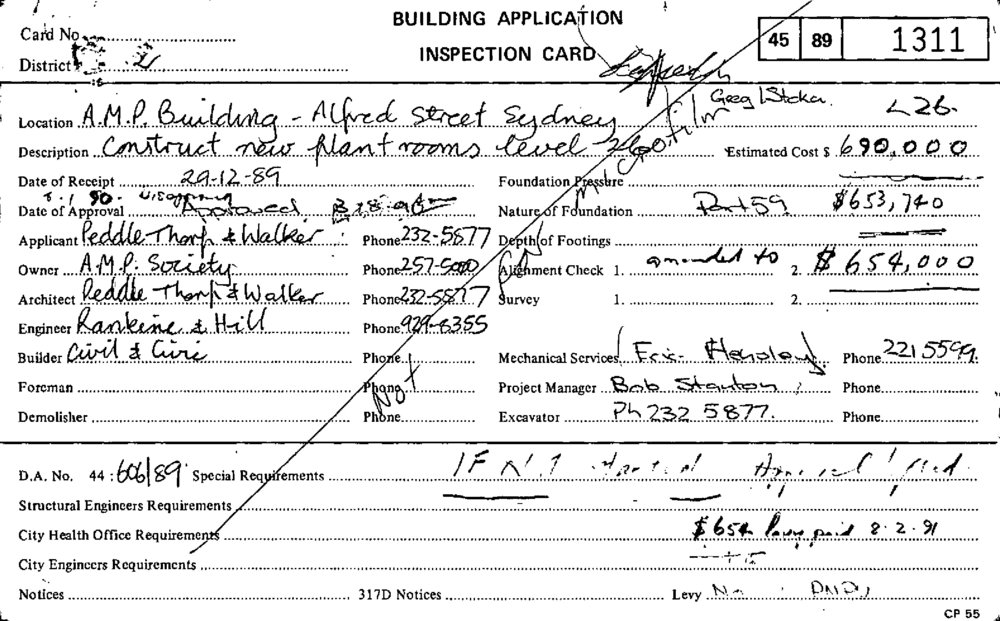 BUILDING APPLICATION
INSPECTION CARD
Card No
District 2
45 89 1311
Greg
L26.
Location A.M.P. Building - Alfred Street Sydney
Description Construct new plant rooms level 26
Estimated Cost $ 690,000
Date of Receipt 29-12-89
Foundation Pressure
Date of Approval Approved
Nature of Foundation Part 59 $653,740
Applicant Peddle Thorp & Walker Phone 232-5877
Depth of Footings
Owner A.M.P. Society Phone 257-5000
Alignment Check 1. amended to 2. $654,000
Architect Peddle Thorp & Walker Phone 232-5877
Survey 1. 2.
Engineer Rankine & Hill Phone 929-6355
Builder Civil & Civic Phone
Mechanical Services Eric Phone 221 5599
Foreman Phone
Project Manager Bob Stanton Phone
Demolisher Phone
Excavator Ph 232 5877. Phone
Not on microfilm
D.A. No. 44 : 606/89 Special Requirements IF Not
Structural Engineers Requirements
City Health Office Requirements $654 paid 8.2.91
City Engineers Requirements
Notices 317D Notices Levy No
CP 55